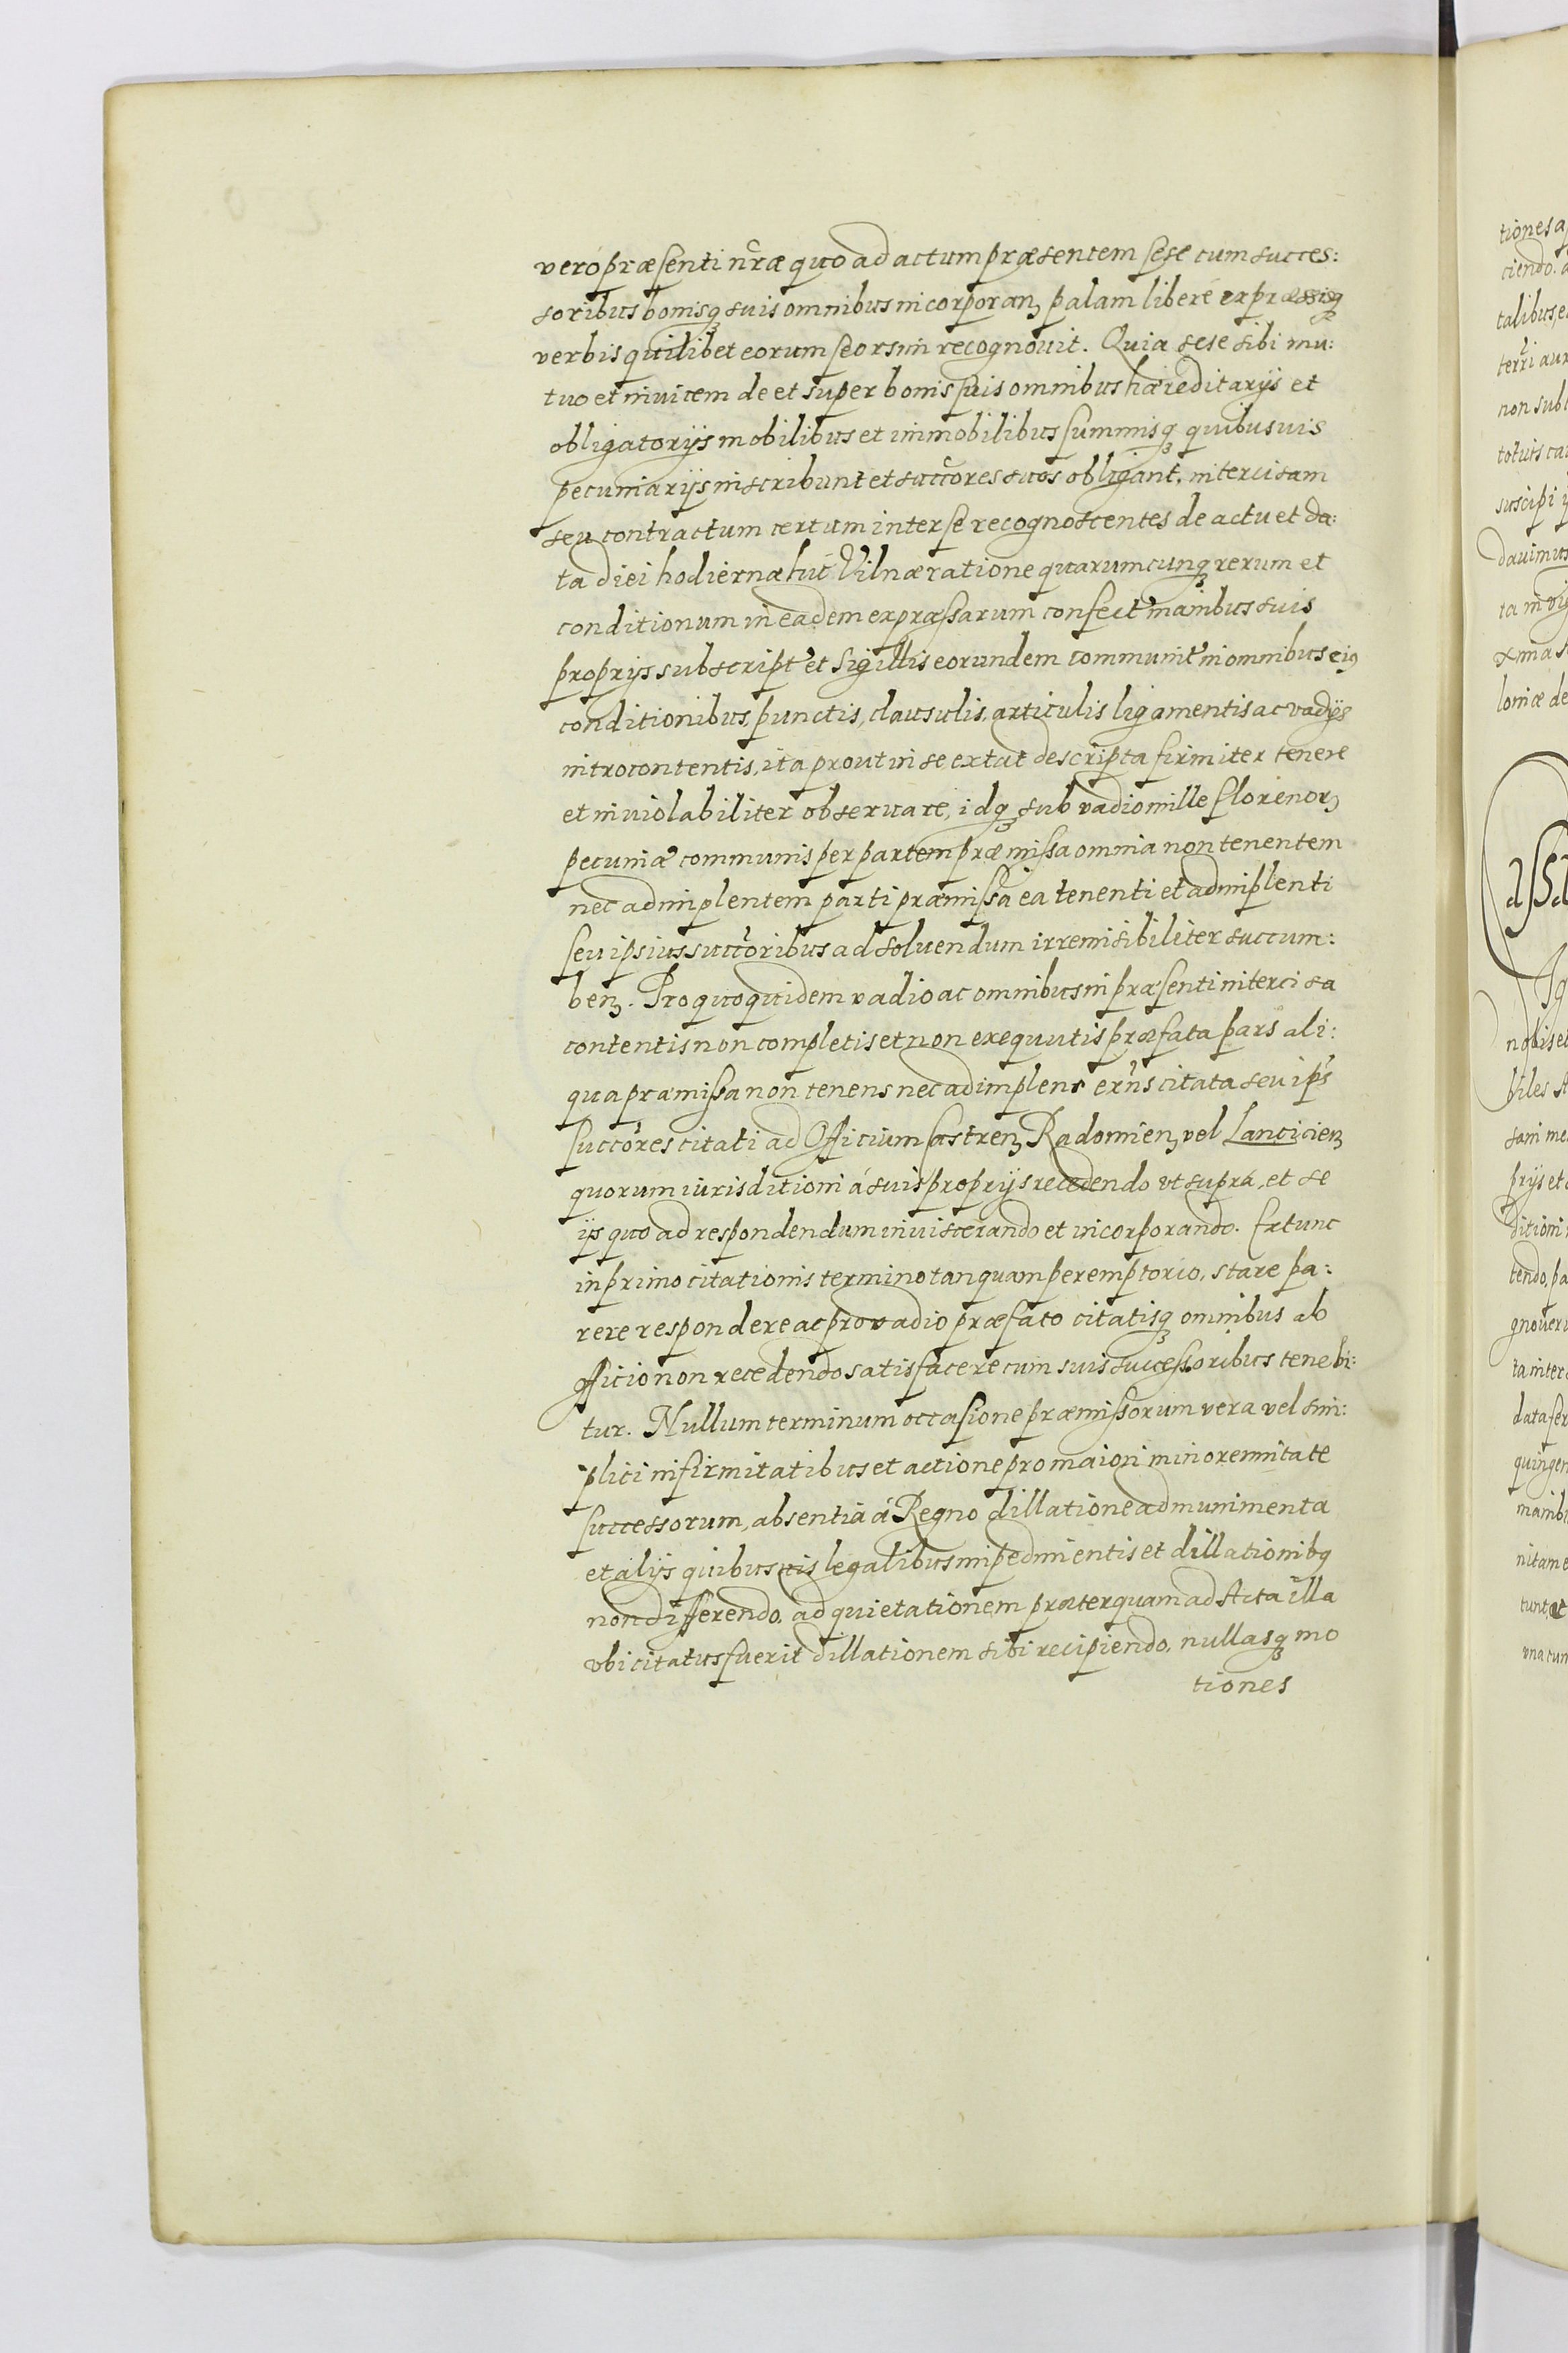 vero præsenti nr̃æ quo ad actum præsentem sese cum succes:
soribus bonisqȝ suis omnibus incorporanȝ palam libere expræssisqȝ
verbis quilibet eorum seorsim recognouit. Quia sese sibi mu:
tuo et inuicem de et super bonis suis omnibus hæreditarijs et
obligatorijs mobilibus et immobilibus summisqȝ quibusuis
pecuniarijs inscribunt et succ̃ores suos obligant, intercisam
seu contractum certum inter se recognoscentes de actu et da:
ta diei hodiernæ huć Vilnæ ratione quarumcunqȝ rerum et
conditionum in eadem expræssarum confect' manibus suis
proprijs subscript' et sigillis eorundem communit' in omnibus eiꝯ
conditionibus, punctis, clausulis, articulis ligamentis ac vadijs
introcontentis, ita prout in se extat descripta firmiter tenere
et inuiolabiliter obseruare, idqȝ sub vadio mille florenorȝ
pecuniæ communis per partem præmissa omnia non tenentem
nec adimplentem parti præmissa ea tenenti et adimplenti
seu ipsius succ̃oribus ad soluendum irremisibiliter succum:
benȝ. Pro quo quidem vadio ac omnibus in præsenti intercisa
contentis non completis et non exequutis præfata pars ali:
qua præmissa non tenens nec adimplens exñs citata seu ip̃s
succ̃ores citati ad Officium Castrenȝ Radomienȝ vel Lancicienȝ
quorum iurisditioni á suis proprijs recedendo vt supra, et se
ijs quo ad respondendum inuiscerando et incorporando. Extunc
in primo citationis termino tanquam peremptorio, stare pa:
rere respondere ac pro vadio præfato citatisqȝ omnibus ab
officio non recedendo satisfacere cum suis successoribus tenebi:
tur. Nullum terminum occasione præmissorum vera vel sim:
plici infirmitatibus et actione pro maiori minorennitate
successorum, absentia á Regno dillatione ad munimenta
et alijs quibusuis legalibus impedimentis et dillationibꝫ
non differendo, ad quietationem præterquam ad Acta illa
vbi citatus fuerit dillationem sibi recipiendo, nullasqȝ mo
tiones